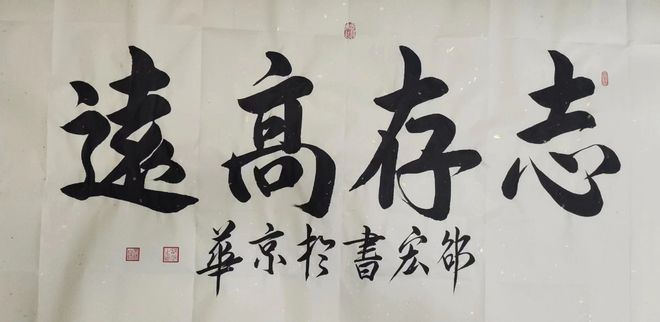 志存高遠
邵宏書於京華